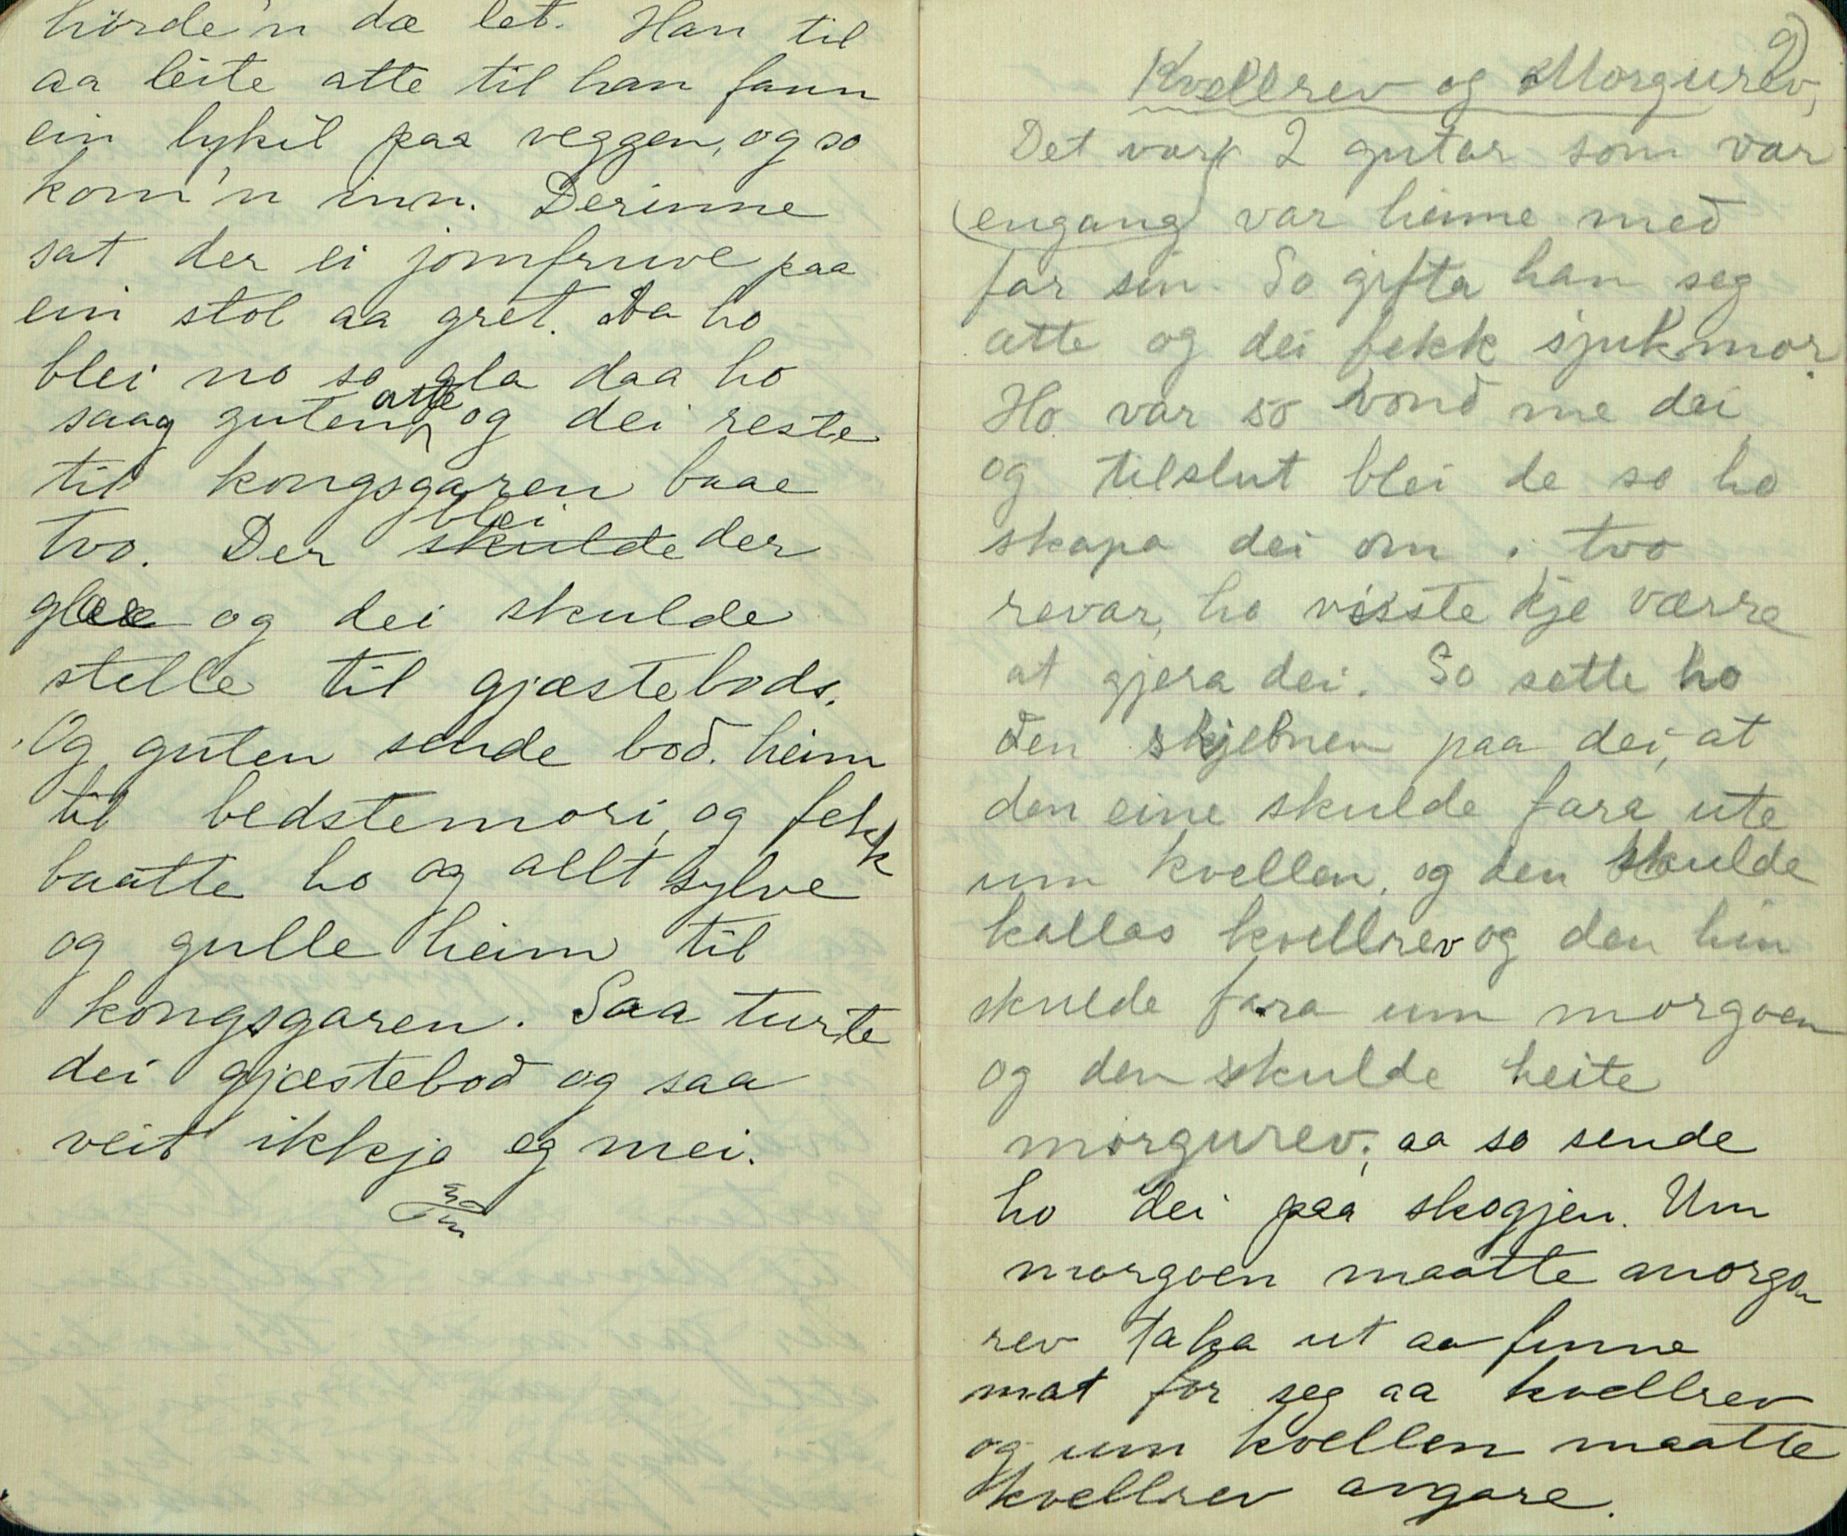 hörde'n dæ let. Han til
aa leite atte til han fann
ein lykil paa veggen, og so
kom'n inn. Derinne
sat der ei jomfruve paa
ein stol aa gret. Da ho
blei no so gla daa ho
saag guten atte og dei reste
til kongsgaren baae
tvo. Der blei skulde der
glæe og dei skulde
stelle til gjæstebods.
Og guten sende bod heim
til bedstemori, og fekk
baatte ho og allt sylve
og gulle heim til
kongsgaren. Saa turte
dei gjæstebod og saa
veit ikkje eg mei.
9)
Kvellrev og Morgurev,
Det var 2 gutar som var
(engang) var heime med
far sin. So gifta han seg
atte og dei fekk sjukmor.
Ho var so vond me dei
og tilslut blei de so ho
skapa dei om i tvo
revar, ho visste kje værre
at gjera dei. So sette ho
den skjebnen paa dei, at
den eine skulde fara ute
um kvellen, og den skulde
kallas kvellrev og den hin
skulde fara um morgoen
og den skulde heite
morgurev; aa so sende
ho dei paa skogjen. Um
morgoen maatte morgo
rev taka ut aa finne
mat for seg aa kvellrev
og um kvellen maatte
kvellrev avgare.